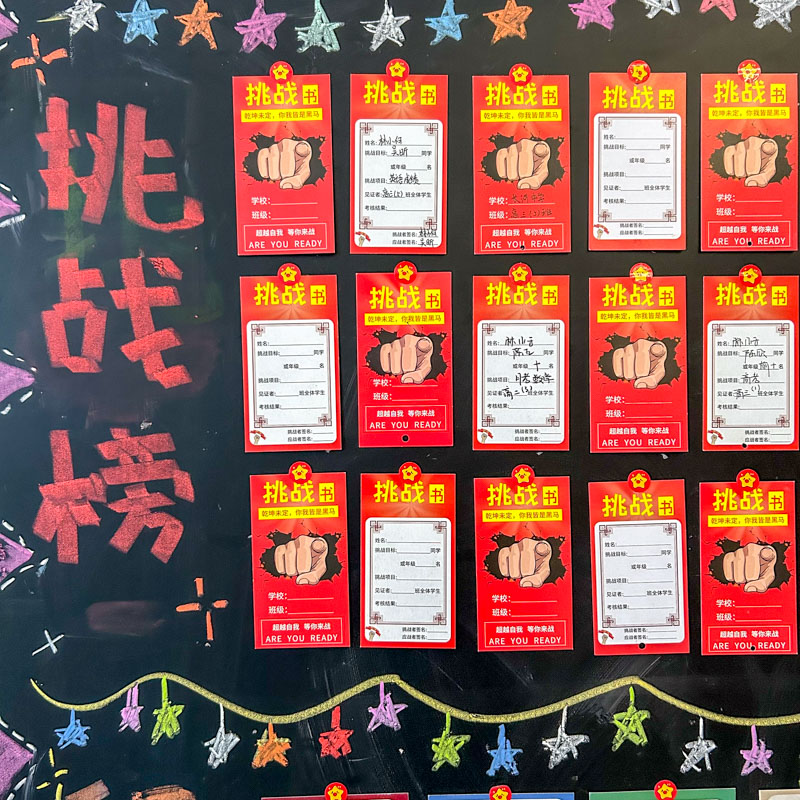 挑战榜
挑战书
乾坤未定，你我皆是黑马
学校：
班级：
超越自我 等你来战
ARE YOU READY
挑战书
姓名：林小白
挑战目标：吴昕 同学
或年级 名
挑战项目：英语成绩
见证者：高三(2) 班全体学生
考核结果：
挑战者签名：
应战者签名：吴昕
挑战书
乾坤未定，你我皆是黑马
学校：
班级：高三(3)班
超越自我 等你来战
ARE YOU READY
挑战书
姓名：
挑战目标： 同学
或年级 名
挑战项目：
见证者： 班全体学生
考核结果：
挑战者签名：
应战者签名：
挑战书
乾坤未定，你我皆是黑马
学校：
班级：
超越自我 等你来战
ARE YOU READY
挑战书
姓名：
挑战目标： 同学
或年级 名
挑战项目：
见证者： 班全体学生
考核结果：
挑战者签名：
应战者签名：
挑战书
乾坤未定，你我皆是黑马
学校：
班级：
超越自我 等你来战
ARE YOU READY
挑战书
姓名：林小方
挑战目标： 同学
或年级 十 名
挑战项目：月考数学
见证者：高三(3) 班全体学生
考核结果：
挑战者签名：
应战者签名：
挑战书
乾坤未定，你我皆是黑马
学校：
班级：
超越自我 等你来战
ARE YOU READY
挑战书
姓名：
挑战目标： 同学
或年级 前十 名
挑战项目：高考
见证者：高三(1) 班全体学生
考核结果：
挑战者签名：
应战者签名：
挑战书
乾坤未定，你我皆是黑马
学校：
班级：
超越自我 等你来战
ARE YOU READY
挑战书
姓名：
挑战目标： 同学
或年级 名
挑战项目：
见证者： 班全体学生
考核结果：
挑战者签名：
应战者签名：
挑战书
乾坤未定，你我皆是黑马
学校：
班级：
超越自我 等你来战
ARE YOU READY
挑战书
姓名：
挑战目标： 同学
或年级 名
挑战项目：
见证者： 班全体学生
考核结果：
挑战者签名：
应战者签名：
挑战书
乾坤未定，你我皆是黑马
学校：
班级：
超越自我 等你来战
ARE YOU READY